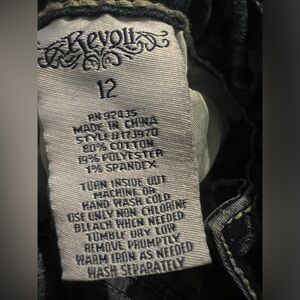 Revolt
12
RN 92435
MADE IN CHINA
STYLE B173970
80% COTTON
19% POLYESTER
1% SPANDEX
TURN INSIDE OUT
MACHINE OR
HAND WASH COLD
USE ONLY NON CHLORINE
BLEACH WHEN NEEDED
TUMBLE DRY LOW
REMOVE PROMPTLY
WARM IRON AS NEEDED
WASH SEPARATELY